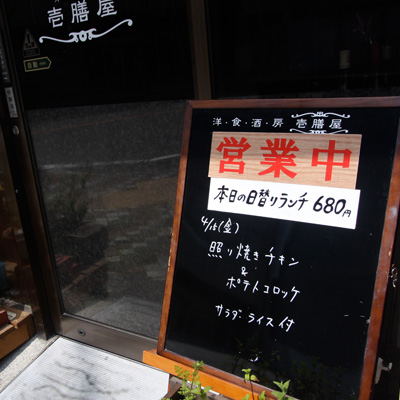 壱膳屋
自動
洋・食・酒・房 壱膳屋
営業中
本日の日替りランチ 680円
4/15(金)
照り焼きチキン
&
ポテトコロッケ
サラダ・ライス付